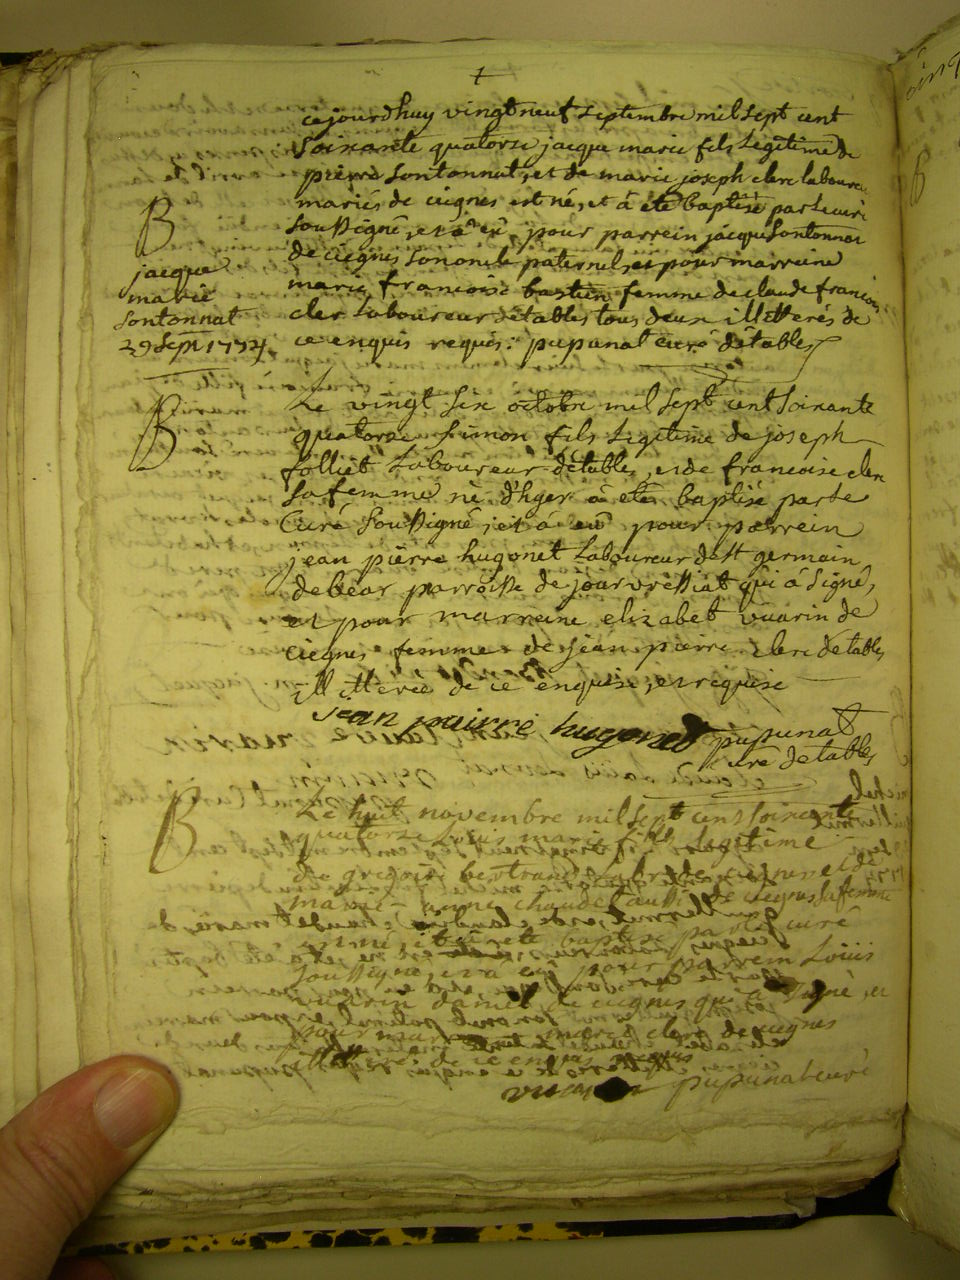 cejourdhuy vingt neuf septembre mil sept cent
soixante quatorze jacque marie fils legitime de
pierre sontonnat, et de marie joseph clerc laboureur
mariés de ceignes est né, et à eté baptisé par le curé
soussigné, et à eû pour parrein jacque sontonnat
de ceignes son oncle paternel, et pour marreine
marie francoise bastien femme de claude francois
clerc laboureur détables tous deux illitterés de
ce enquis requis. pupunat curé détables
B
jacque
marie
sontonnat
29 Sept 1774
B
Le vingt six octobre mil sept cent soixante
quatorze simon fils legitime de joseph
folliet laboureur détables, et de francoise clerc
sa femme né d'hyer à eté baptisé par le
Curé soussigné, et à eû pour parrein
jean pierre hugonet laboureur de st germain
de béar parroisse de jourvressiat qui à signé,
et pour marreine elizabet vuarin de
ceignes femme de jean pierre clerc détables
illitterée de ce enquise, et requise
jean pairre hugonet pupunat
curé détables
B
Le huit novembre mil sept cent soixante
quatorze Louis marie fils legitime
de gregoire bertrand de ceignes et de
marie anne chaudet aussi de ceignes sa femme
est né, et à eté baptisé par le curé
soussigné, et à eû pour parrein Louis
vuarin daniel de ceignes qui à signé, et
pour marreine clerc de ceignes
de ce enquis requis
pupunat curé